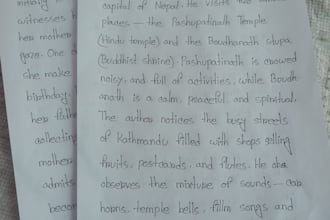 capital of Nepal. He visits two
places – the Pashupatinath Temple
(Hindu temple) and the Boudhanath stupa
(Buddhist shrine). Pashupatinath is crowded
noisy, and full of activities, while Boudh
anath is a calm, peaceful, and spiritual.
The author notices the busy streets
of Kathmandu filled with shops selling
fruits, postcards, and flutes. He also
observes the mixture of sounds – car
horns, temple bells, film songs and
witnesses h
her mother
gaze. One d
she make
birthday,
her
collecting
mother
admits
becom